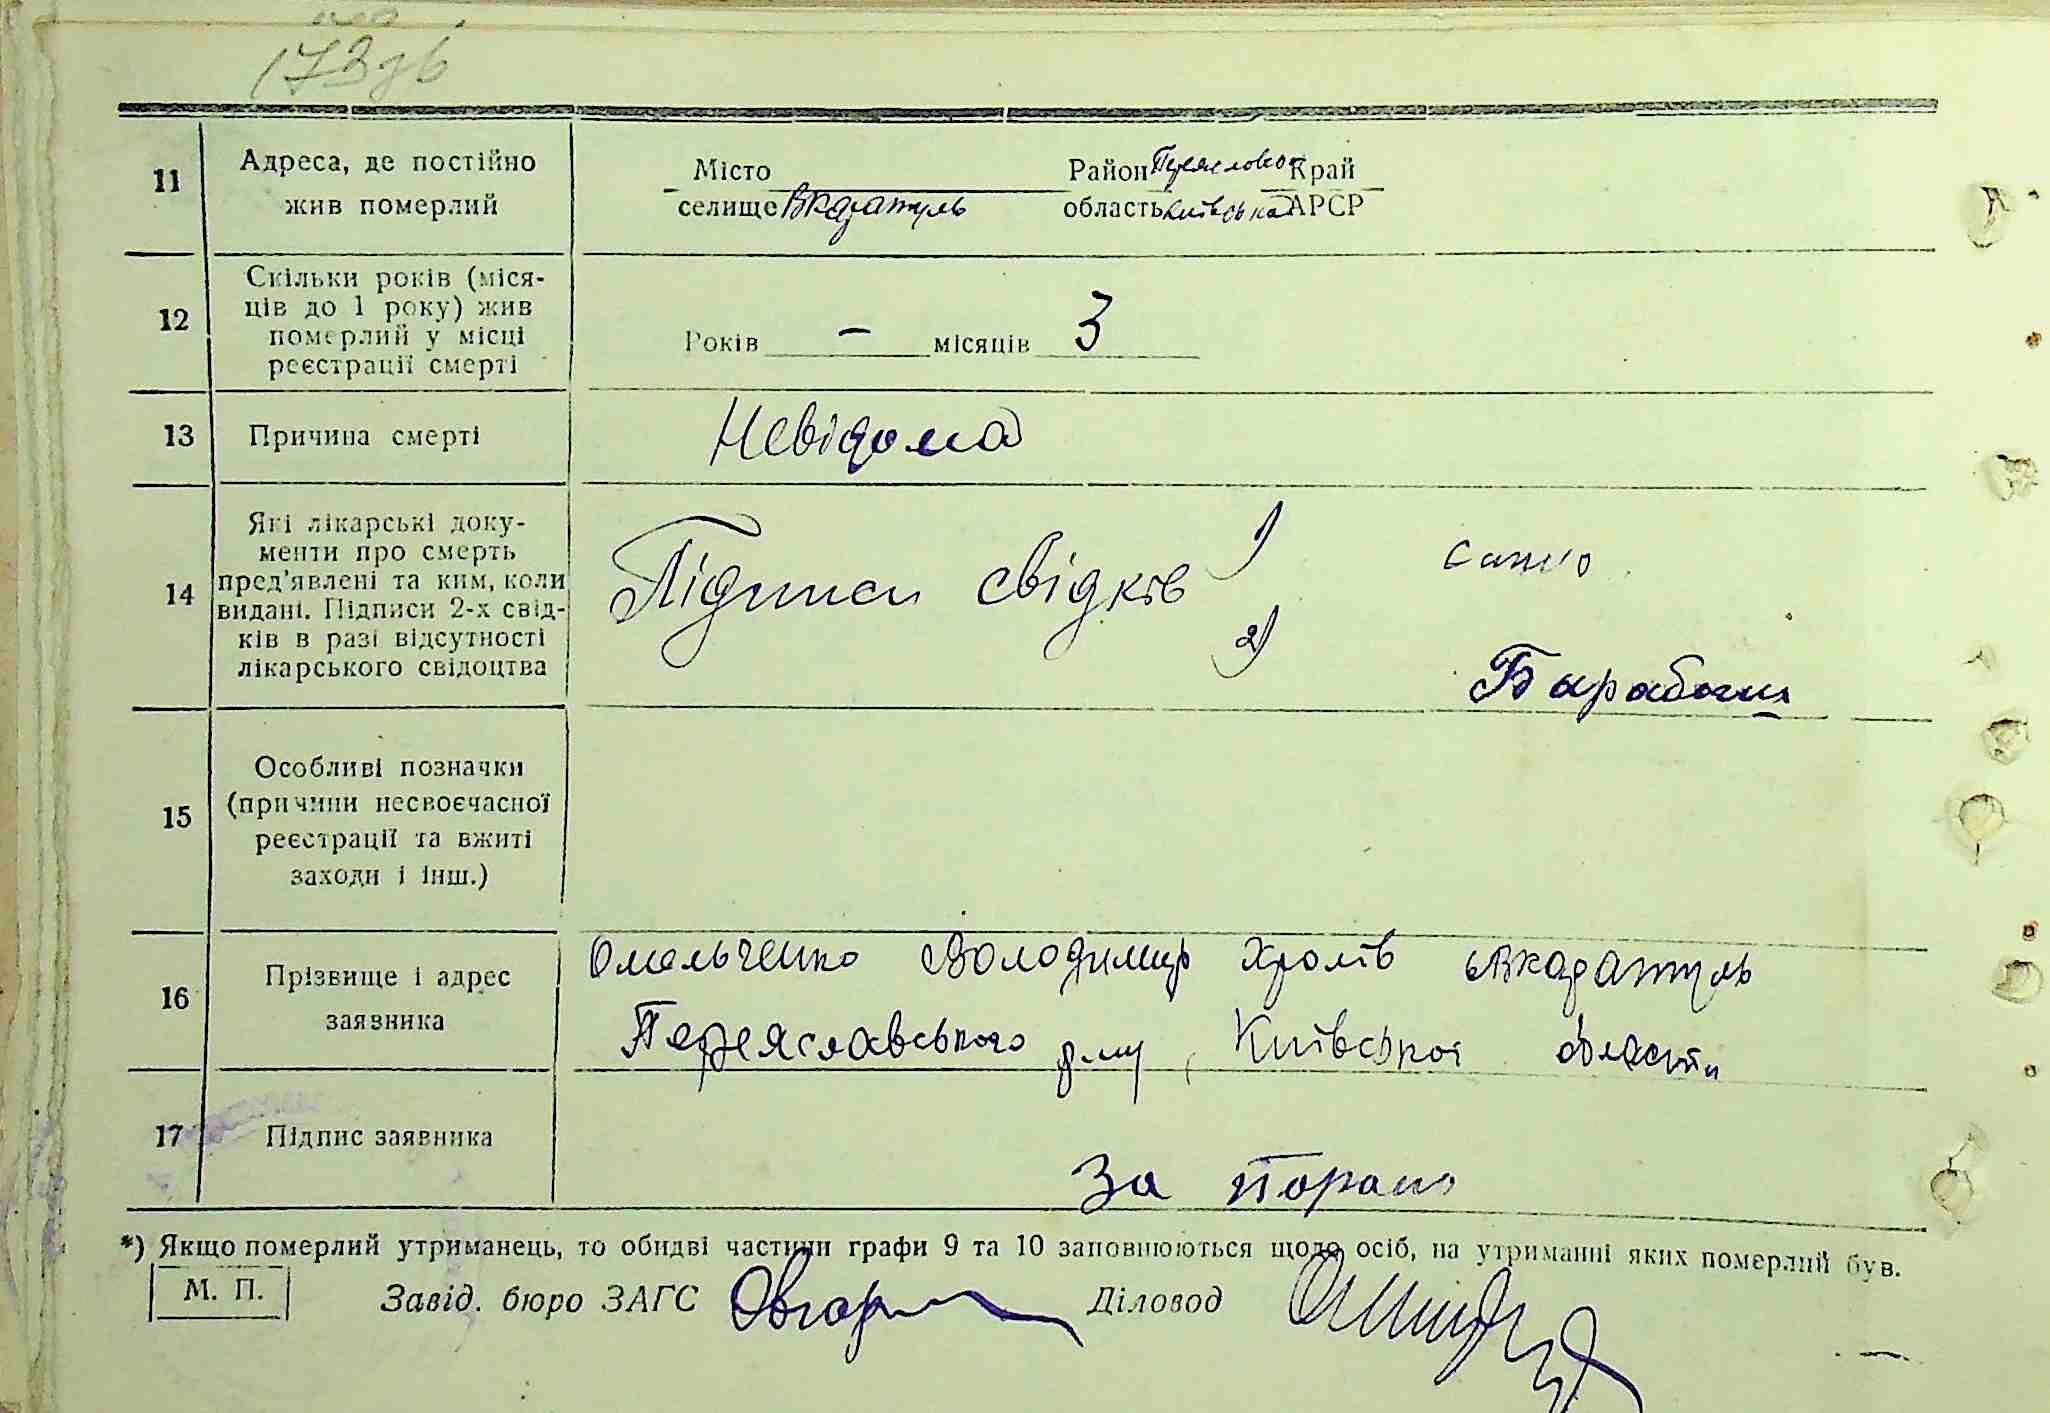 173зв
11 Адреса, де постійно Місто Район Край
жив померлий селище Вкаратуль область Київська АРСР
12 Скільки років (міся-
ців до 1 року) жив
померлий у місці Років — місяців 3
реєстрації смерті
13 Причина смерті Невідома
Які лікарські доку-
менти про смерть 1)
14 пред'явлені та ким, коли Підписи свідків
видані. Підписи 2-х свід-
ків в разі відсутності 2)
лікарського свідоцтва
Особливі позначки
15 (причини несвоєчасної
реєстрації та вжиті
заходи і інш.)
16 Прізвище і адрес Омельченко Володимир Вкаратуль
заявника Переяславського р-ну, Київської області
17 Підпис заявника
За
*) Якщо померлий утриманець, то обидві частини графи 9 та 10 заповнюються щодо осіб, на утриманні яких померлий був.
М. П. Завід. бюро ЗАГС Діловод